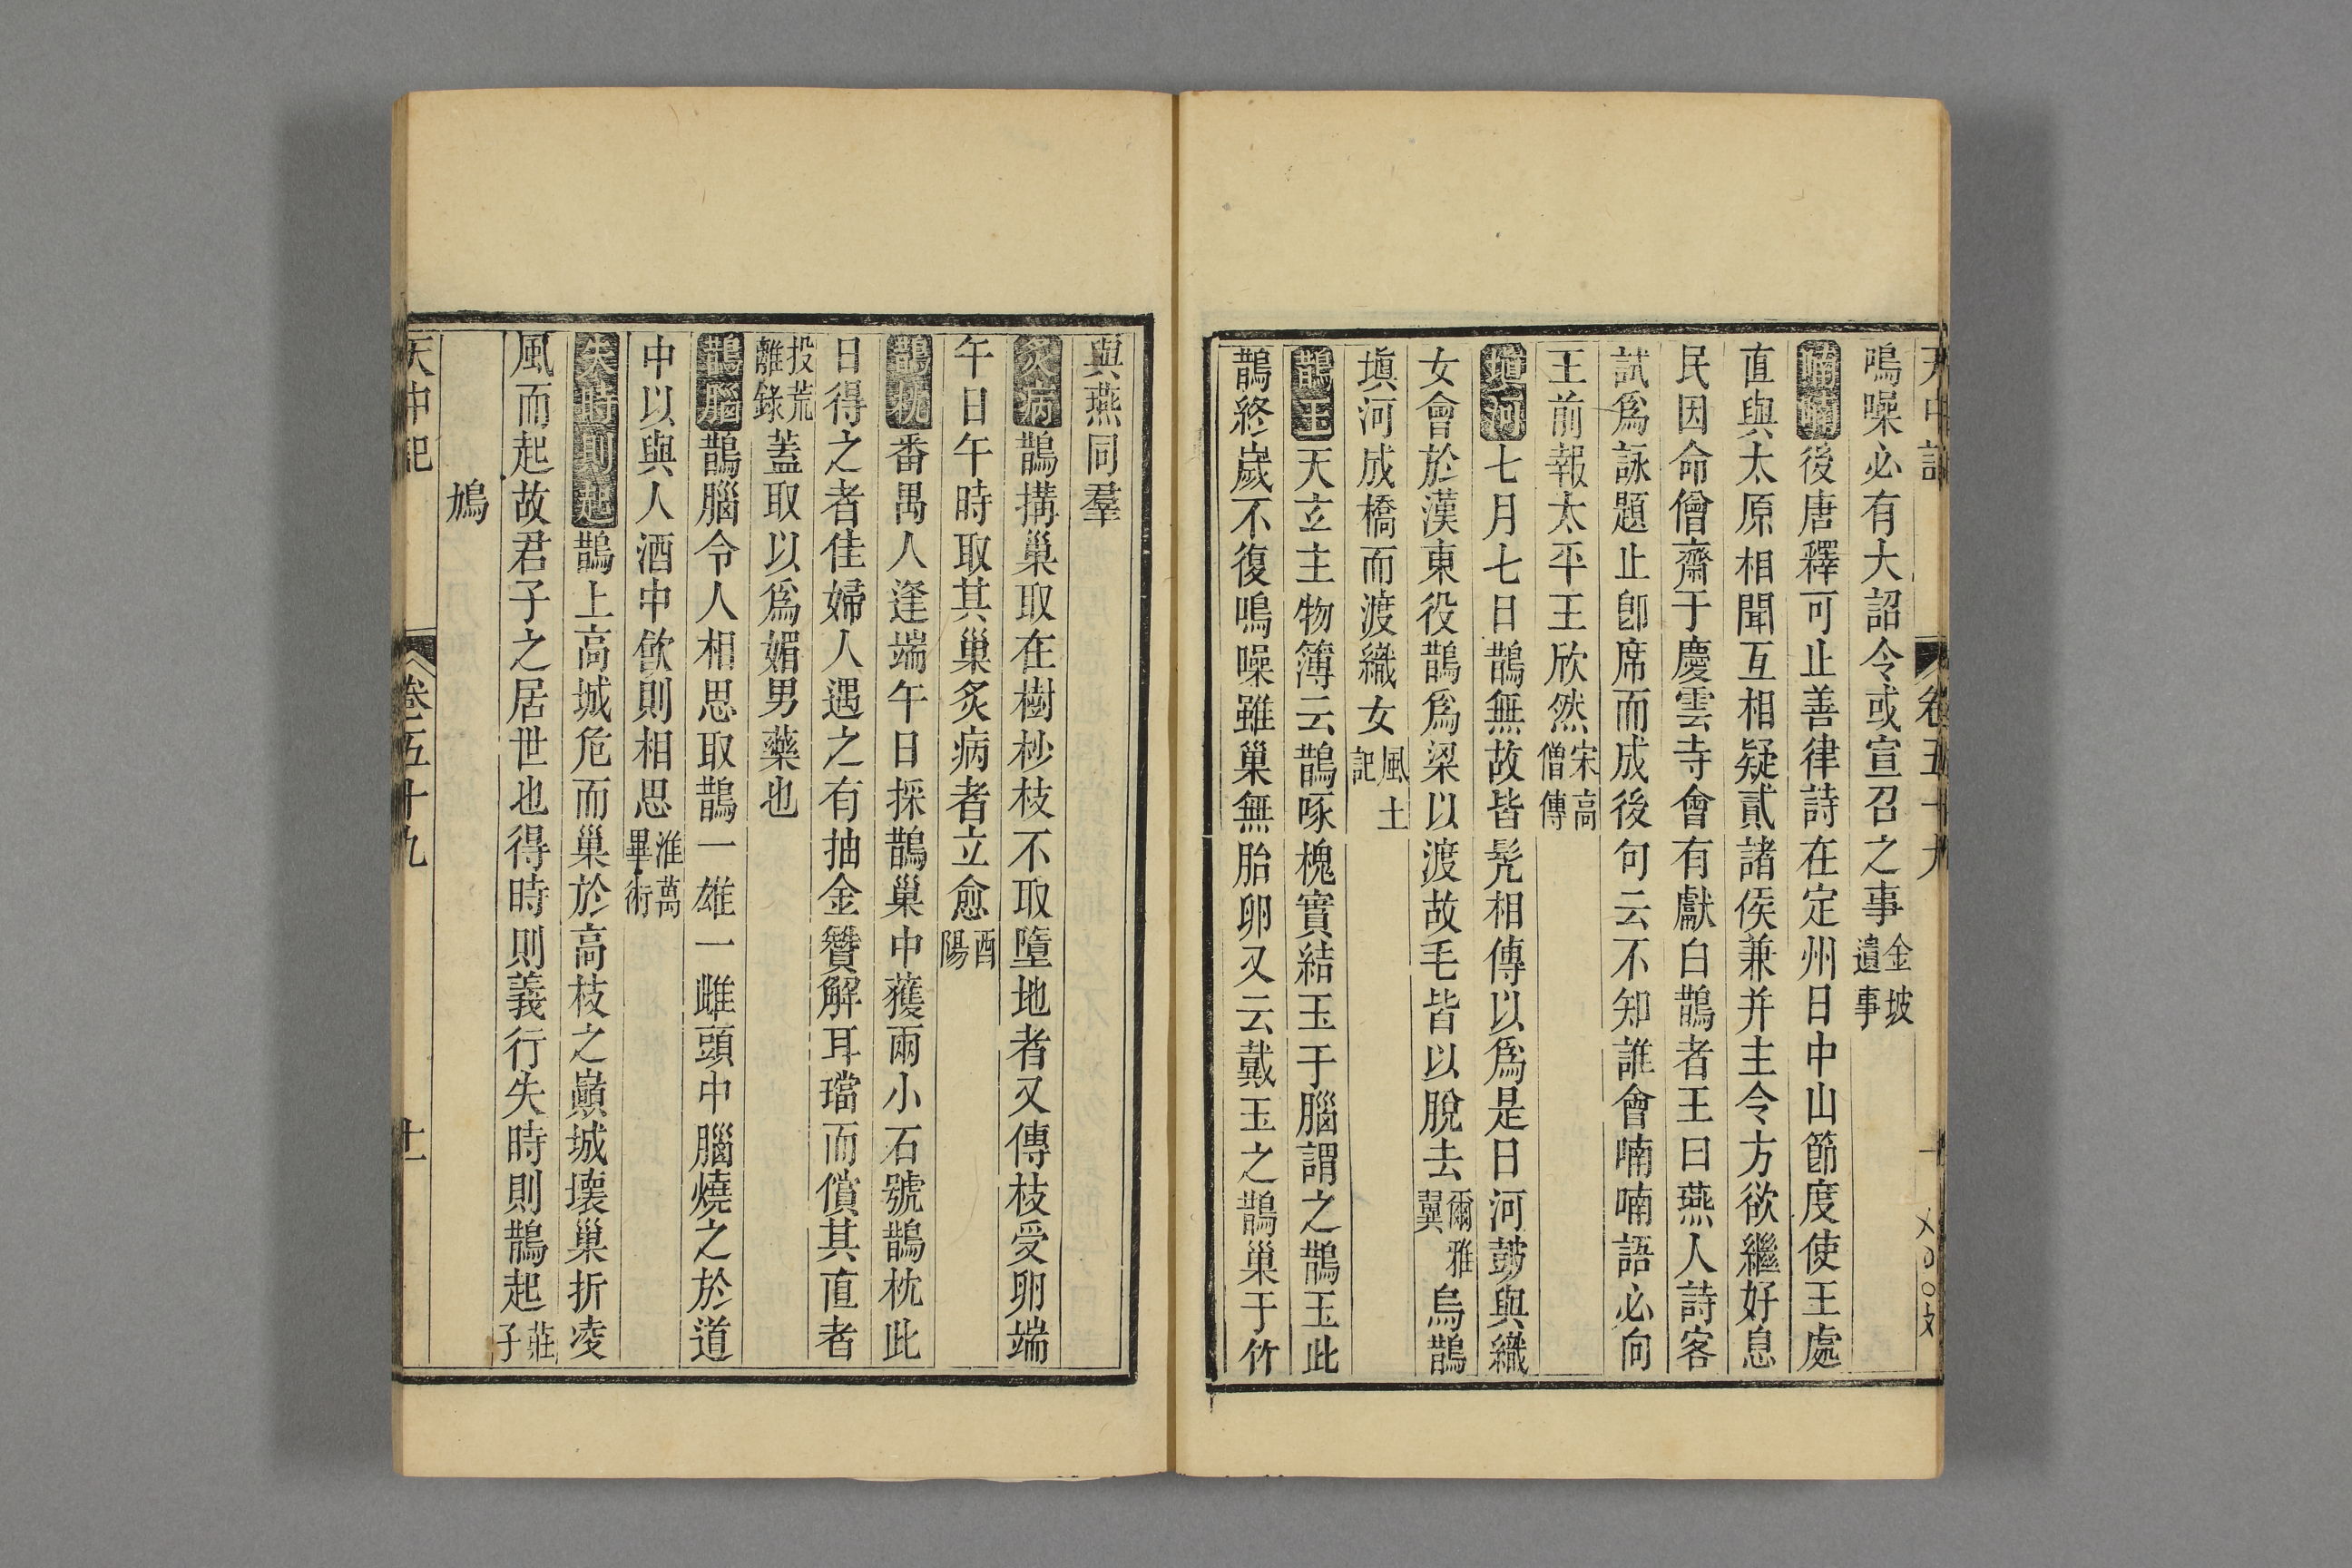 天中記 卷五十九
鳴噪必有大詔令或宣召之事金坡遺事
喃喃後唐釋可止善律詩在定州日中山節度使王處
直與太原相聞互相疑貳諸侯兼并主令方欲繼好息
民因命僧齋于慶雲寺會有獻白鵲者王曰燕人詩客
試爲詠題止卽席而成後句云不知誰會喃喃語必向
王前報太平王欣然宋高僧傳
塡河七月七日鵲無故皆髡相傳以爲是日河鼓與織
女會於漢東役鵲爲梁以渡故毛皆以脫去爾雅翼烏鵲
塡河成橋而渡織女風土記
鵲玉天立主物簿云鵲啄槐實結玉于腦謂之鵲玉此
鵲終歲不復鳴噪雖巢無胎卵又云戴玉之鵲巢于竹
與燕同羣
炙病鵲搆巢取在樹杪枝不取墮地者又傳枝受卵端
午日午時取其巢炙病者立愈酉陽
鵲枕番禺人逢端午日採鵲巢中獲兩小石號鵲枕此
日得之者佳婦人遇之有抽金簪解耳璫而償其直者
投荒雜錄蓋取以爲媚男藥也
鵲腦鵲腦令人相思取鵲一雄一雌頭中腦燒之於道
中以與人酒中飲則相思淮萬畢術
失時則起鵲上高城危而巢於高枝之巔城壞巢折凌
風而起故君子之居世也得時則義行失時則鵲起莊子
鳩
天中記 卷五十九 十一